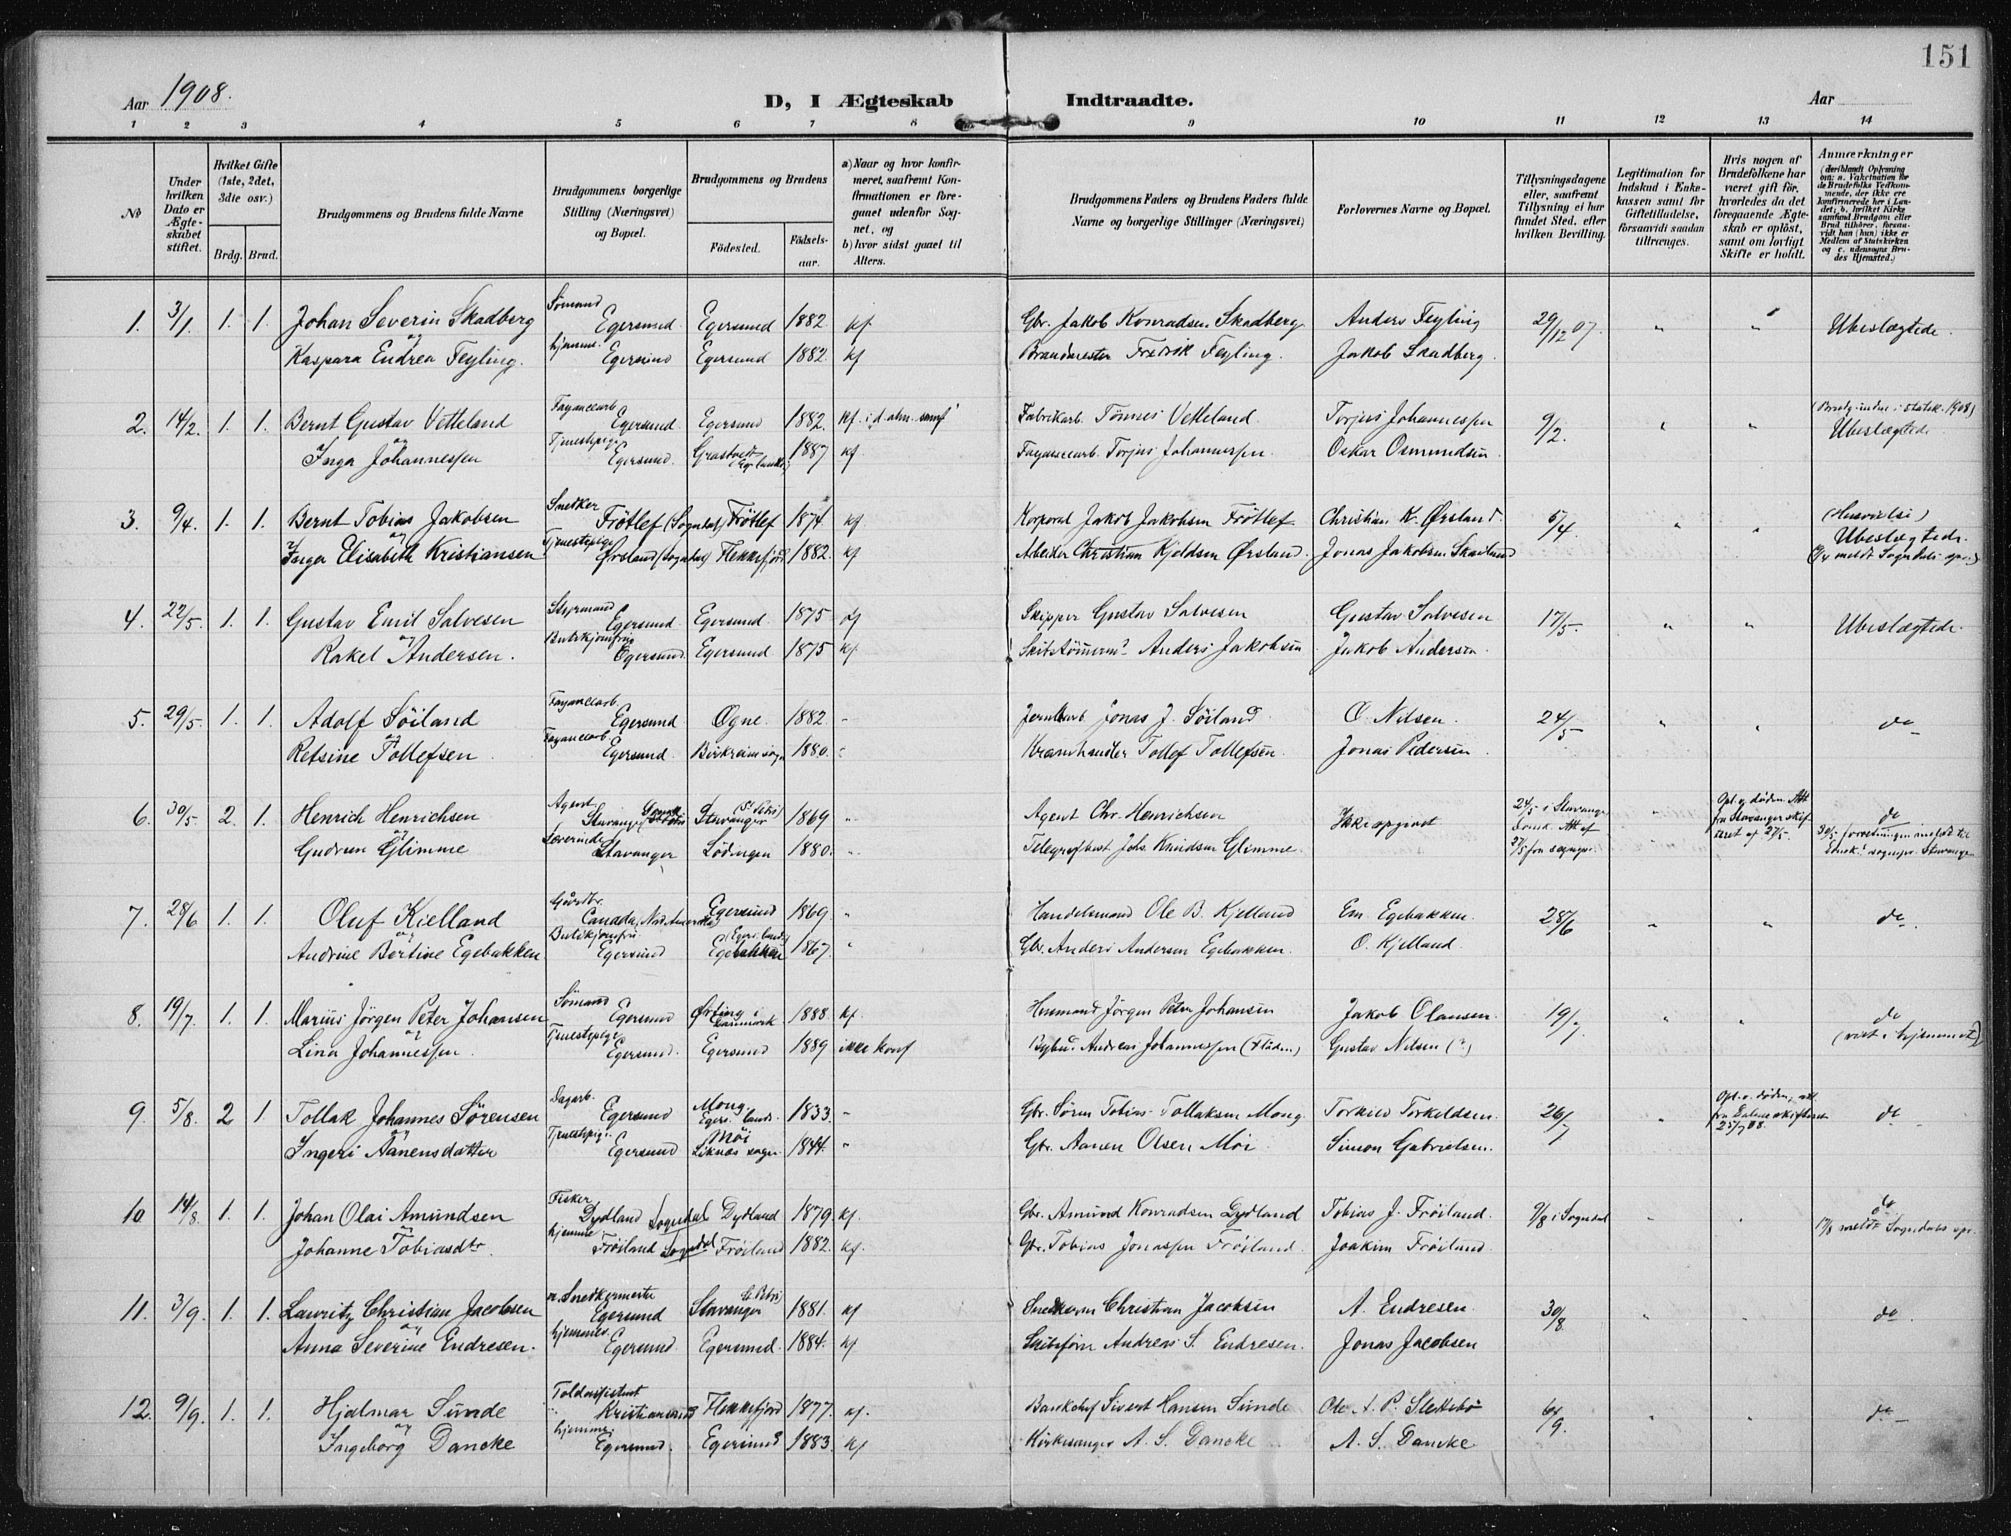 151
Aar 1908.
D, I Ægteskab Indtraadte.
Aar
1 2 3 4 5 6 7 8 9 10 11 12 13 14
№
Under hvilken Dato er Ægteskabet stiftet.
Hvilket Gifte (1ste, 2det, 3die osv.)
Brdg. Brud.
Brudgommens og Brudens fulde Navne
Brudgommens borgerlige Stilling (Næringsvei) og Bopæl.
Brudgommens og Brudens
Fødested. Fødselsaar.
a) Naar og hvor konfirmeret, saafremt Konfirmationen er foregaaet udenfor Sognet, og
b) hvor sidst gaaet til Alters.
Brudgommens Faders og Brudens Faders fulde Navne og borgerlige Stillinger (Næringsvei)
Forlovernes Navne og Bopæl.
Tillysningsdagene eller, saafremt Tillysning ei har fundet Sted, efter hvilken Bevilling.
Legitimation for Indskud i Enkekassen samt for Giftetilladelse, forsaavidt saadan tiltrænges.
Hvis nogen af Brudefolkene har været gift før, hvorledes da det foregaaende Ægteskab er opløst, samt om lovligt Skifte er holdt.
Anmærkninger
(deriblandt Oplysning om: a. Vaccination for de Brudefolks Vedkommende, der ikke ere konfirmerede her i Landet; b. hvilket Kirkesamfund Brudgom eller Brud tilhører, forsaavidt han (hun) ikke er Medlem af Statskirken og c. udensogns Brudes Hjemsted.)
1. 3/1 1. 1. Johan Severin Skadberg Sømand Egersund Egersund 1882 kf. Gbr. Jakob Konradsen Skadberg Anders Feyling 29/12 07. " " Ubeslægtede
og
Kaspara Endrea Feyling. hjemme. Egersund Egersund 1882 kf Brandmester Fredrik Feyling. Jakob Skadberg.
2. 14/2. 1. 1. Bernt Gustav Vetteland Fayancearb. Egersund. Egersund 1882. kf. i d. alm. samf. Fabrikarb. Tønnes Vetteland. Torjus Johannessen 9/2. " " Ubeslægtede
og
Inga Johannessen Tjenestepige Egersund. 1887 kf Fayancearb. Torjus Johannessen. Oskar Osmundsen
3. 9/4. 1. 1. Bernt Tobias Jakobsen Snedker Frøtlef (Sogndal) Frøtlef 1874 kf Korporal Jakob Jakobsen Frøtlef. Christian K. Ørsland. 5/4 " " Ubeslægtede.
og
Inga Elisabeth Kristiansen Tjenestepige Ørsland (Sogndal) Flekkefjord 1882. kf Arbeider Christian Kjeldsen Ørsland. Jonas Jakobsen
4. 22/5. 1. 1. Gustav Emil Salvesen Styrmand Egersund Egersund. 1875 kf Skipper Gustav Salvesen Gustav Salvesen 17/5. " " Ubeslægtede.
og
Rakel Andersen. Butikjomfru Egersund. Egersund 1875 kf. Anders Jakobsen Jakob Andersen.
5. 29/5. 1. 1. Adolf Søiland Fayancearb. Egersund Ogne. 1882 " Jonas J. Søiland. O. Nilsen. 24/5 " " do
og
Retsine Tollefsen Fayancearb Egersund. Birkreim sogn 1880. " Kramhandler Tollef Tollefsen Jonas Pedersen.
6. 30/5. 2. 1. Henrich Henrichsen Agent. Stavanger Stavanger (St. Petri) 1869 " Agent Chr. Henrichsen Ikke opgivet 24/5 i Stavanger do
og
Gudrun Glimme Lærerinde Stavanger Lødingen 1880. " Telegrafbest. Johs. Knudsen Glimme.
7. 28/6 1. 1. Oluf Kielland Gårdbr. Canada, Nord Amerika Egersund 1869 " Handelsmand Ole B. Kjelland Em. Egebakken 28/6 " " do.
og
Andrine Bertine Egebakken Butikjomfru. Egersund Egebakken (Egers. lands.) 1867. " Gbr. Anders Andersen Egebakken. O. Kjelland.
8. 19/7. 1. 1. Marius Jörgen Peter Johansen Sømand Egersund Ørting i Danmark 1888. kf. Husmand Jörgen Peter Johansen Jakob Olausen. 19/7 " " do
og
Lina Johannessen. Tjenestepige Egersund. Egersund 1889 ikke konf Andreas Johannessen (Fladen) Gustav Nilsen (?) (viet i hjemmet)
9. 5/8. 2 1 Tollak Johannes Sørensen Dagarb. Egersund Mong. Egers. lands. 1833 " Gbr. Søren Tobias Tollaksen Mong. Torkild Torkeldsen. 26/7 " do
og
Ingeri Aanensdatter Tjenestepige. Egersund Møi Liknes sogn 1844. " Gbr. Aanen Olsen Møi Simon Gabrielsen.
10 14/8. 1. 1. Johan Olai Amundsen Fisker Dydland Sogndal Dydland 1879. kf. Gbr. Amund Konradsen Dydland Tobias J. Frøiland. 9/8 i Sogndal " " do
Johanne Tobiasdtr. hjemme Frøiland Sogndal Frøiland 1882. kf. Gbr. Tobias Jonassen Frøiland. Joakim Frøiland.
11. 3/9. 1. 1. Lauritz Christian Jacobsen Snedkermester Egersund Stavanger (St. Petri) 1881. kf Christian Jacobsen A. Endresen. 30/8. " " do.
og
Anna Severine Endresen. hjemme. Egersund. Egersund. 1884. kf. Skibsfører Andreas S. Endresen. Jonas Jacobsen
12. 9/9. 1. 1. Hjalmar Sunde Toldassistent Kristiansund Flekkefjord 1877. kf. Bankchef Sivert Hansen Sunde Ole A. P. Slettebø 6/9. " " do
og
Ingeborg Dancke hjemme. Egersund. Egersund 1883. kf Kirkesanger A. S. Dancke A. S. Dancke